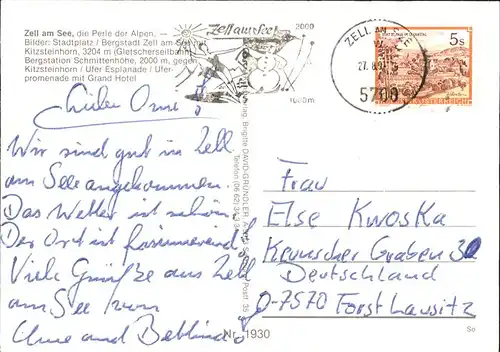 Zell am See, die Perle der Alpen. —
Bilder: Stadtplatz / Bergstadt Zell am See mit
Kitzsteinhorn, 3204 m (Gletscherseilbahn)
Bergstation Schmittenhöhe, 2000 m, gegen
Kitzsteinhorn / Ufer Esplanade / Ufer-
promenade mit Grand Hotel
Zell am See
2000
ZELL AM SEE
5700
5s
Liebe Oma!
Wir sind gut in Zell
am See angekommen.
Das Wetter ist schön
Der Ort ist faszinierend!
Viele Grüße aus Zell
am See von
und
Frau
Else Kwoska
Graben 3
Deutschland
D-7570 Forst Lausitz
Brigitte DAVID-GRÜNDLER
Nr. 1930
So